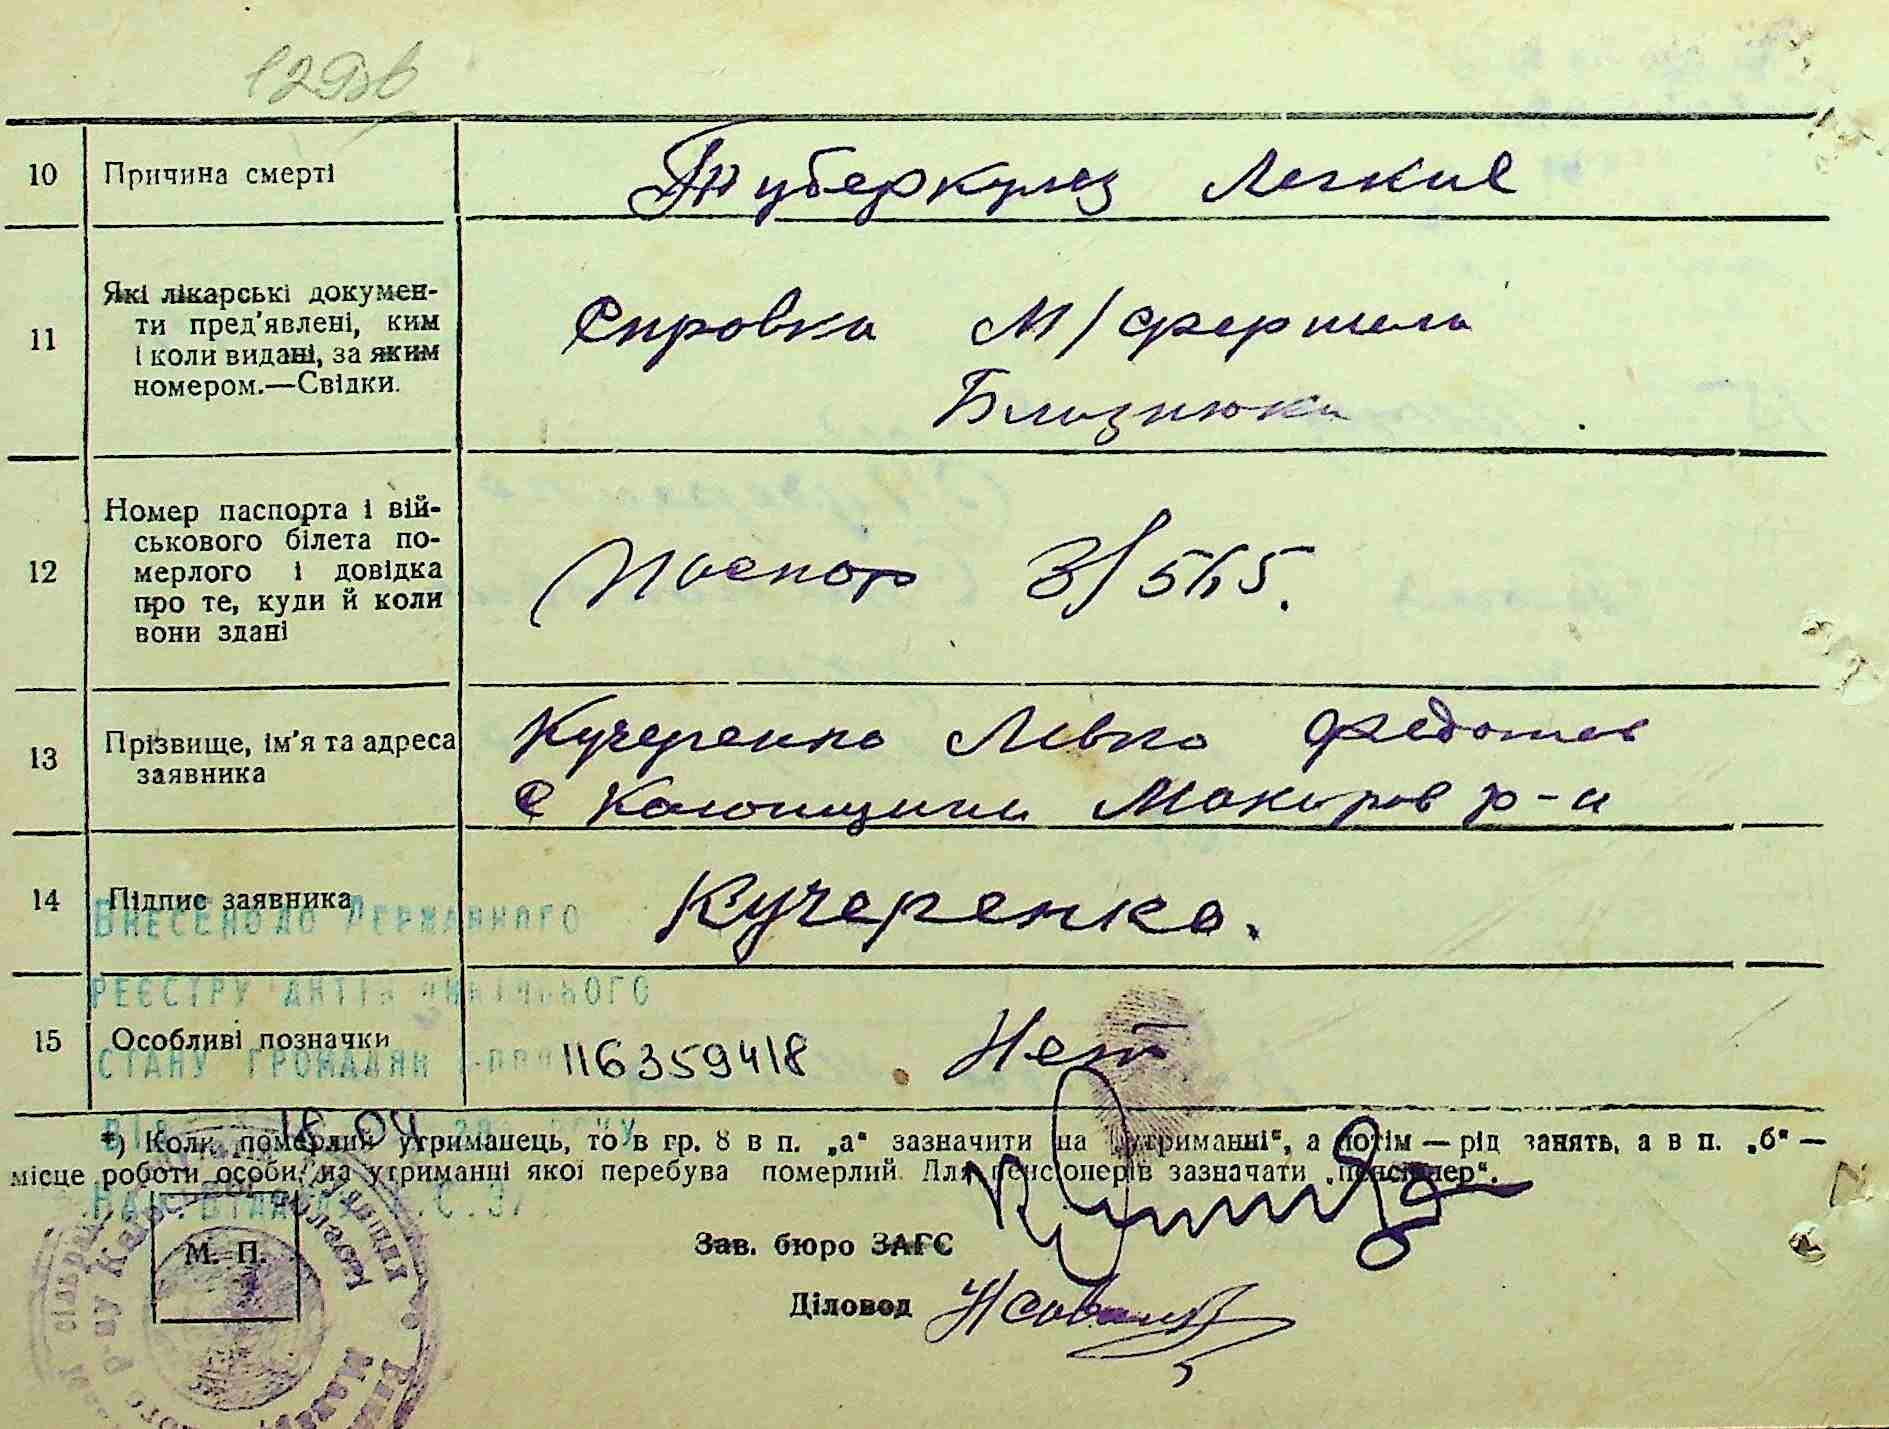 10 Причина смерті Туберкулез Легкие
11 Які лікарські докумен-
ти пред'явлені, ким
і коли видані, за яким
номером.—Свідки.
Справка М/фершела
Близнюка
12 Номер паспорта і вій-
ськового білета по-
мерлого і довідка
про те, куди й коли
вони здані
Паспор
13 Прізвище, ім'я та адреса
заявника
Кучеренко Левко Федотов
с Колонщина Макаров р-н
14 Підпис заявника Кучеренко.
ВНЕСЕНО ДО ДЕРЖАВНОГО
РЕЄСТРУ АКТІВ ЦИВІЛЬНОГО
15 Особливі позначки 116359418 Нет
СТАНУ ГРОМАДЯН
ВІД 18.04
*) Коли померлий утриманець, то в гр. 8 в п. „а“ зазначити на „утриманні“, а потім — рід занять, а в п. „б“ —
місце роботи особи, на утриманні якої перебува померлий. Для пенсіонерів зазначати „пенсіонер“.
М. П.
Зав. бюро ЗАГС
Діловод